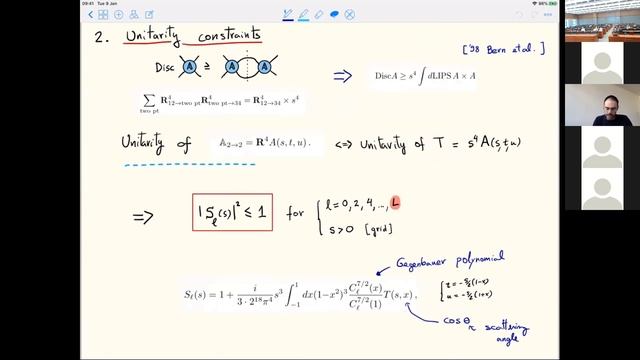 09:41 Tue 9 Jan
96%
2. Unitarity constraints
['98 Bern et al.]
Disc A ≥ A A
⟹ DiscA ≥ s^4 ∫ dLIPS A × A
∑_{two pt} R^4_{12→two pt} R^4_{two pt→34} = R^4_{12→34} × s^4
Unitarity of 𝔸_{2→2} = R^4 A(s, t, u). <=> Unitarity of T = s^4 A(s,t,u)
⟹ |S_ℓ(s)|^2 ≤ 1 for { l = 0, 2, 4, ..., L
s > 0 [grid]
Gegenbauer polynomial
S_ℓ(s) = 1 + \frac{i}{3 · 2^{18} π^4} s^3 ∫_{-1}^{1} dx(1−x^2)^3 \frac{C_ℓ^{7/2}(x)}{C_ℓ^{7/2}(1)} T(s, x),
{ t = -s/2(1-x)
u = -s/2(1+x)
cos θ
scattering angle